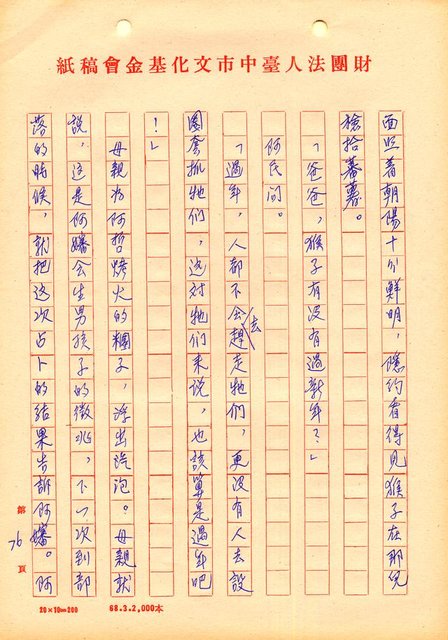 財團法人臺中市文化基金會稿紙
面照着朝陽十分鮮明，隱約看得見猴子在那兒
撿拾蕃薯。
「爸爸，猴子有没有過新年？」
阿民问。
「過年，人都不会去趕走牠们，更没有人去設
圈套抓牠们，这对牠们来说，也該算是過年吧
！」
母親为阿哲烤火的糰子，浮出汽泡。母親就
說，这是阿嬸会生男孩子的徵兆，下一次到部
落的時候，就把这次占卜的结果告訴阿嬸。阿
第 76 頁
20×10=200
68.3.2,000本